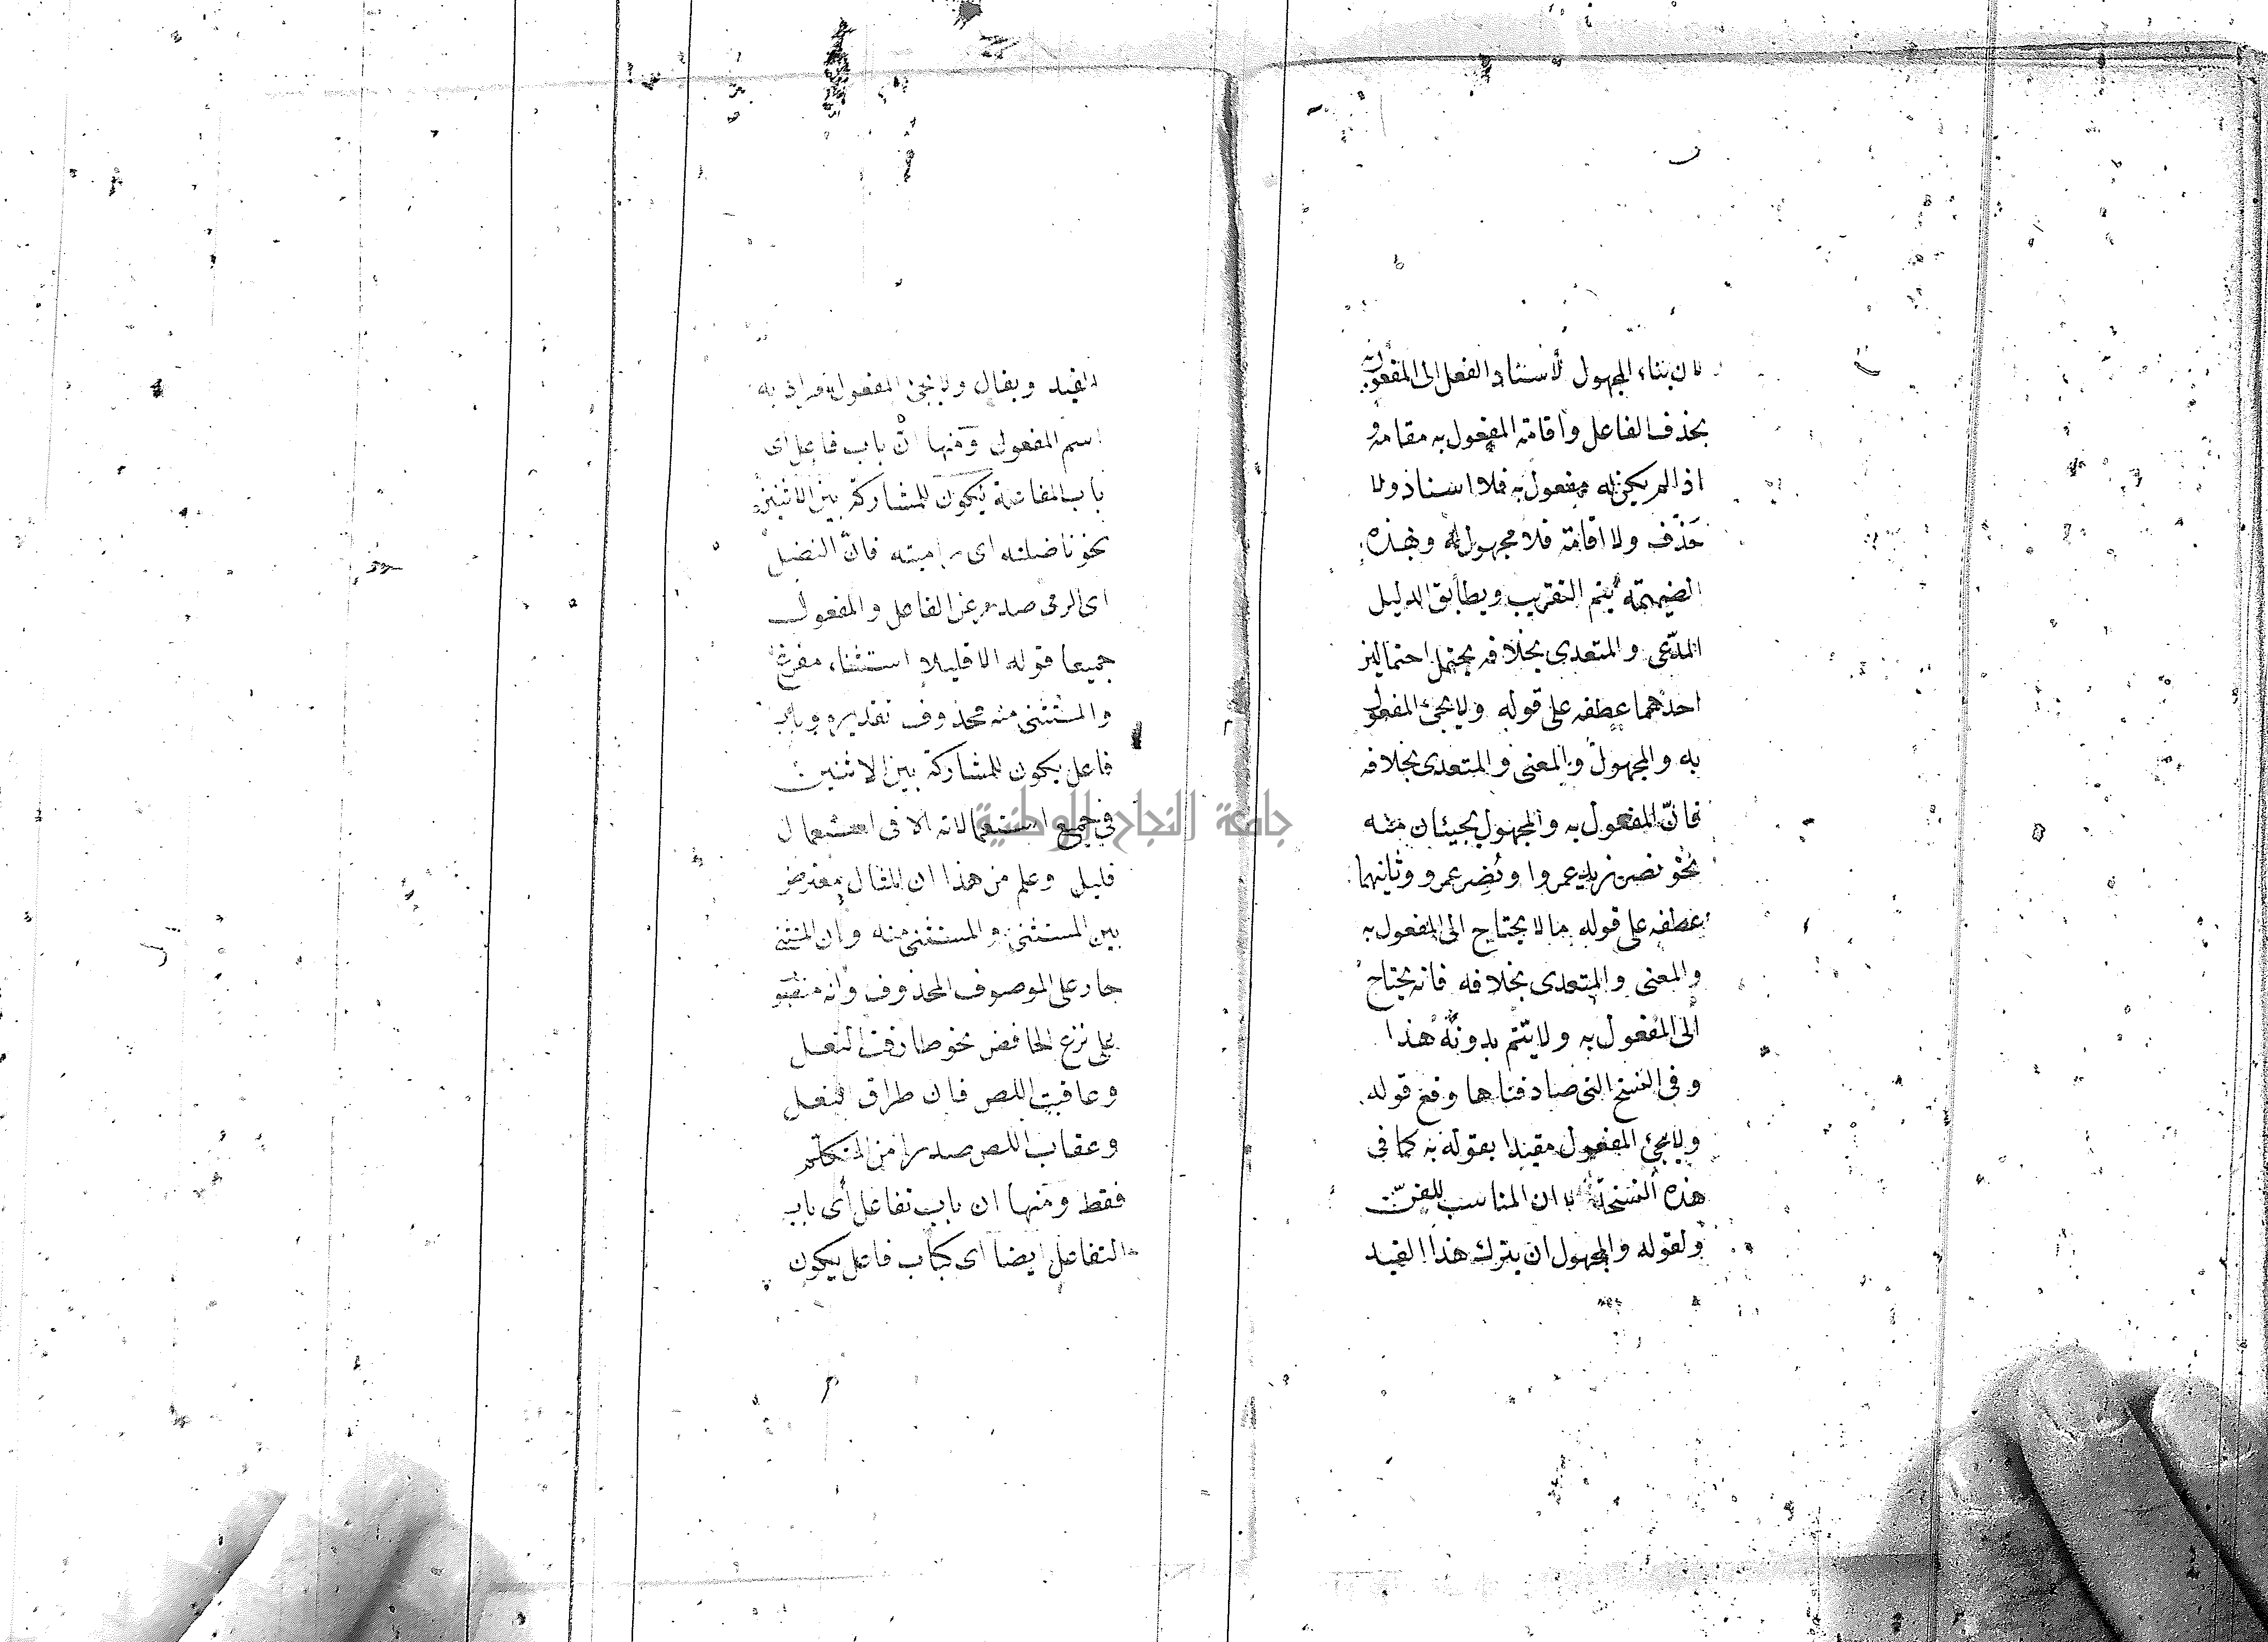 لان بناء المجهول لأسناد الفعل الى المفعول به
بحذف الفاعل واقامة المفعول به مقامه و
اذا لم يكن له مفعول به فلا اسناد ولا
حذف ولا اقامة فلا مجهول له وبهذه
الضميمة يتم التقريب ويطابق الدليل
المدّعى والمتعدى بخلافه يحتمل احتمالين
احدهما عطفه على قوله ولا يجئ المفعول
به والمجهول والمعنى والمتعدى بخلافه
فانّ المفعول به والمجهول يجيئان منه
نحو نصر زيد عمروا ونُصِر عمرو وثانيهما
عطفه على قوله ما لا يحتاج الى المفعول به
والمعنى والمتعدى بخلافه فانه يحتاج
الى المفعول به ولا يتّم بدونه هذا
وفى النسخ التى صادفناها وقع قوله
ولا يجئ المفعول مقيدا بقوله به كما فى
هذه النسخة ان المناسب للفنّ
ولقوله والمجهول ان يترك هذا القيد
القيد ويقال ولا يجئ المفعول به
اسم المفعول ومنها انّ باب فاعل اى
باب المفاعلة يكون للمشاركة بين الاثنين
نحو ناضلته اى راميته فانّ النضيل
اى الرمى صدر عن الفاعل والمفعول
جميعا قوله الا قليلا استثناء مفرغ
والمستثنى منه محذوف تقديره وباب
فاعل يكون للمشاركة بين الاثنين
فى جميع استعمالاته الا فى استعمال
قليل وعلم من هذا ان المثال معترض
بين المستثنى والمستثنى منه وان المستثنى
جار على الموصوف المحذوف وانه منصوب
على نزع الخافض نحو طارقت النعل
وعاقبت اللص فان طراق النعل
وعقاب اللص صدرا من المتكلم
فقط ومنها ان باب تفاعل أى باب
التفاعل ايضا اى كباب فاعل يكون
جامعة النجاح الوطنية